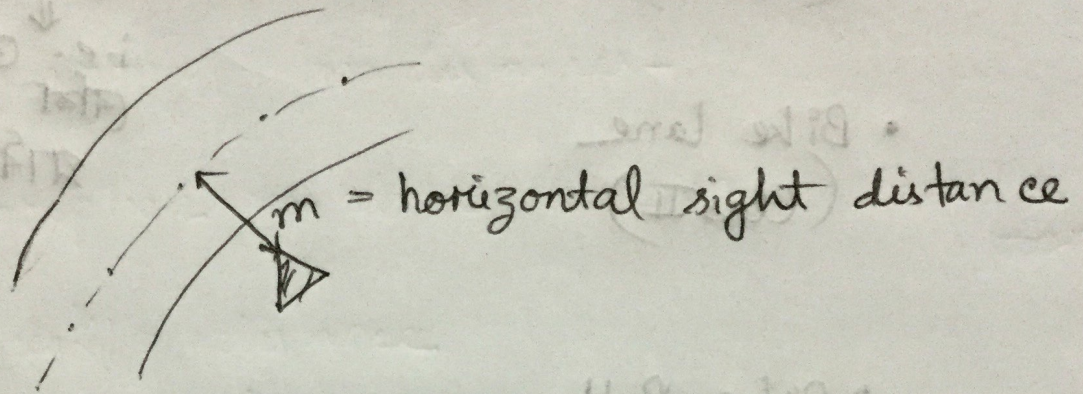 m = horizontal sight distance